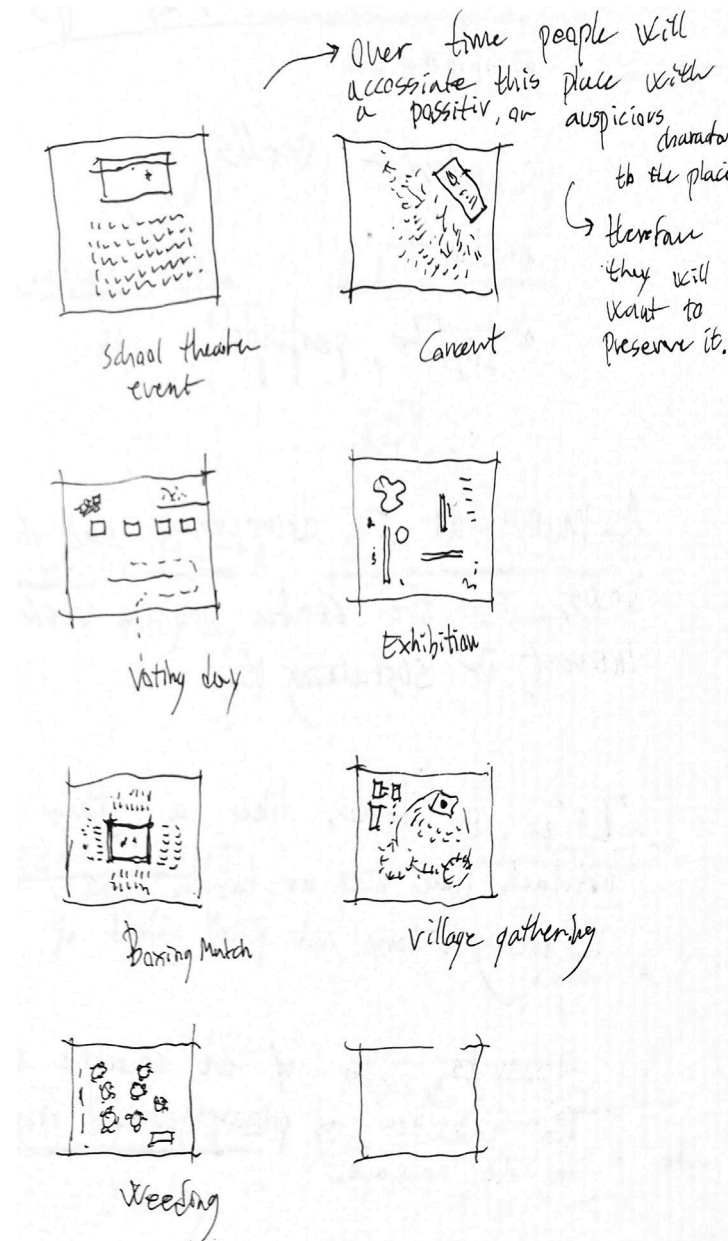 Over time people will
accossiate this place with
a possitiv, an auspicious
charactar
to the place
therefore
they will
want to
preserve it.
School theater
event
Concert
Voting day
Exhibition
Boxing Match
Village gathering
Weeding